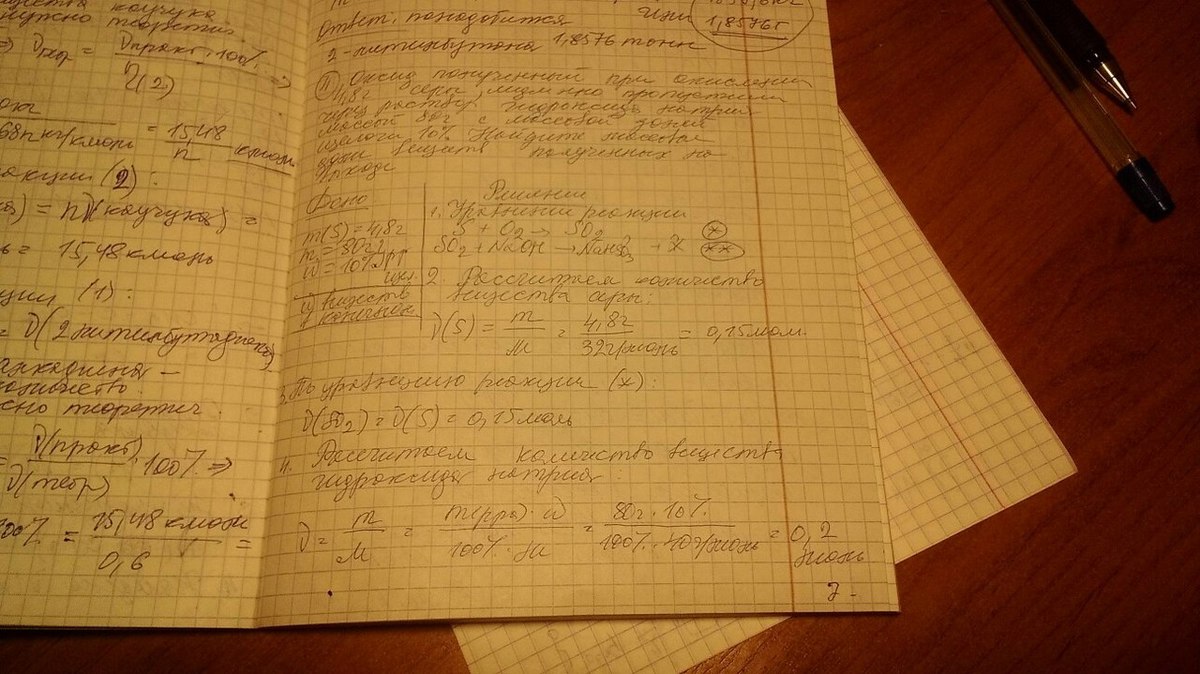 каучука
нужно теоретич.
ν(практ)·100%
η(2)
= 15,48
n
кмоль
68n кг/кмоль
реакции (2):
= nν(каучука) =
= 15,48 кмоль
(1):
= ν(2-метилбутадиена)
количество
теоретич.
ν(практ) · 100% ⇒
ν(теор)
100% = 15,48 кмоль =
0,6
Ответ: понадобится или 1,8576т
2-метилбутана 1,8576 тонн
Оксид полученный при окислении
4,8г серы, медленно пропустили
через раствор гидроксида натрия
массой 80г с массовой долей
щелочи 10%. Найдите массовые
доли веществ полученных на
выходе
Дано
m(S) = 4,8г
m = 80г
ω = 10%
ω веществ
конечных
Решение
1. Уравнении реакции
S + O₂ → SO₂ (*)
SO₂ + NaOH → NaHSO₃ + X (**)
2. Рассчитаем количество
вещества серы:
ν(S) = m/M = 4,8г/32г/моль = 0,15 моль
3. По уравнению реакции (*):
ν(SO₂) = ν(S) = 0,15 моль
4. Рассчитаем количество вещества
гидроксида натрия:
ν = m/M = m(рра)·ω/100%·M = 80г·10%/100%·40г/моль = 0,2
моль